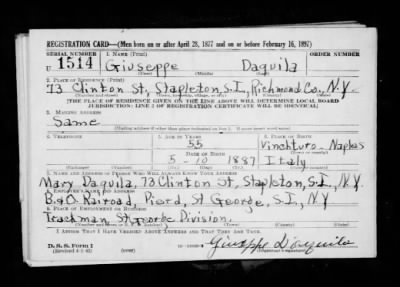 REGISTRATION CARD—(Men born on or after April 28, 1877 and on or before February 16, 1897)
SERIAL NUMBER 1. NAME (Print) ORDER NUMBER
U 1514 Giuseppe Daquila
(First) (Middle) (Last)
2. PLACE OF RESIDENCE (Print)
73 Clinton St, Stapleton, S.I., Richmond Co, N.Y.
[THE PLACE OF RESIDENCE GIVEN ON THE LINE ABOVE WILL DETERMINE LOCAL BOARD
JURISDICTION; LINE 2 OF REGISTRATION CERTIFICATE WILL BE IDENTICAL]
3. MAILING ADDRESS
Same
[Mailing address if other than place indicated on line 2. If same insert word same]
4. TELEPHONE 5. AGE IN YEARS 6. PLACE OF BIRTH
55 Vinchturo Naples
DATE OF BIRTH
5 10 1887 Italy
7. NAME AND ADDRESS OF PERSON WHO WILL ALWAYS KNOW YOUR ADDRESS
Mary Daquila, 73 Clinton St, Stapleton, S.I., N.Y.
8. EMPLOYER'S NAME AND ADDRESS
B.&O. Railroad, Pier d, St George, S.I., N.Y
9. PLACE OF EMPLOYMENT OR BUSINESS
Trackman St George Division.
I AFFIRM THAT I HAVE VERIFIED ABOVE ANSWERS AND THAT THEY ARE TRUE.
D. S. S. Form 1
Giuseppe D'aquila